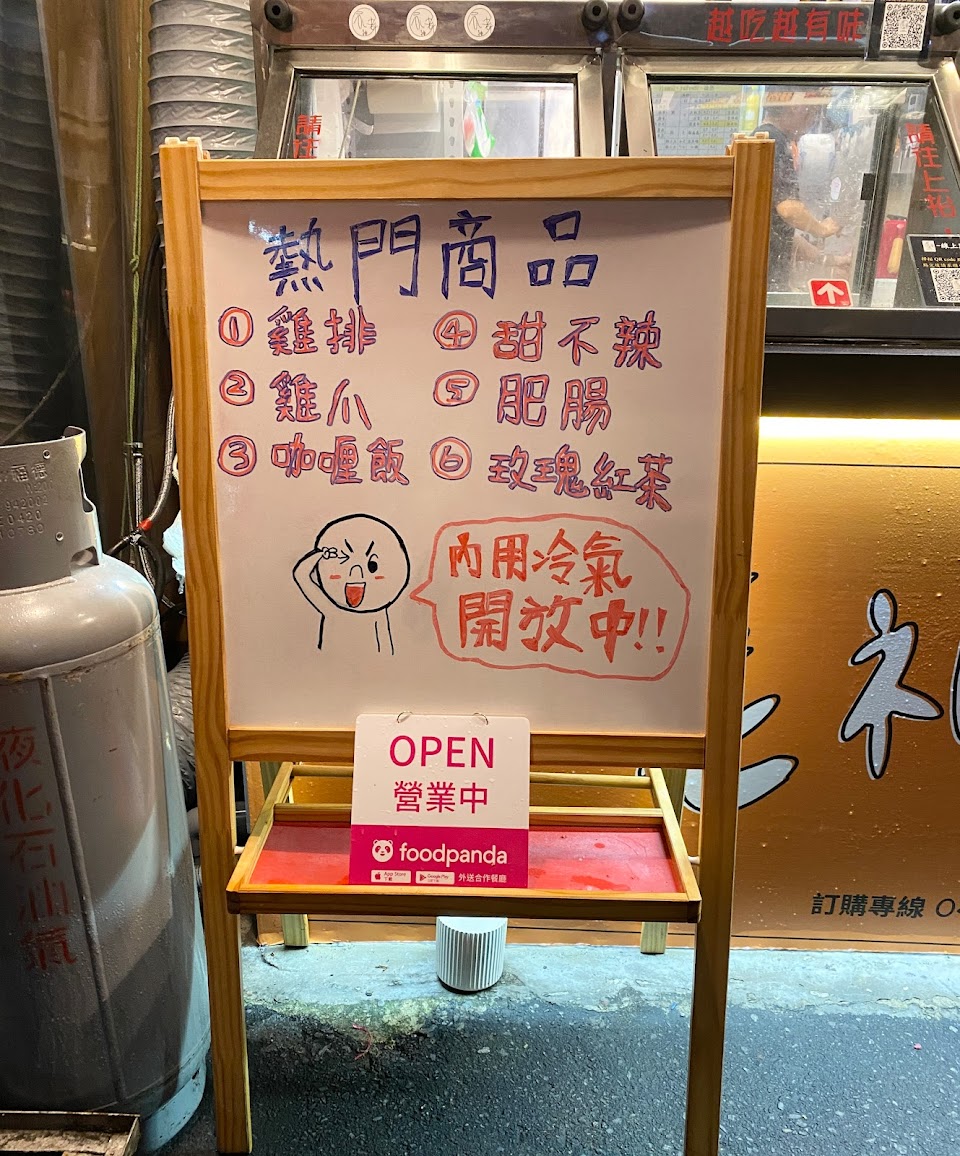 越吃越有味
熱門商品
① 雞排
② 雞爪
③ 咖哩飯
④ 甜不辣
⑤ 肥腸
⑥ 玫瑰紅茶
內用冷氣
開放中!!
OPEN
營業中
foodpanda
App Store
Google Play
外送合作餐廳
液化石油氣
訂購專線 0